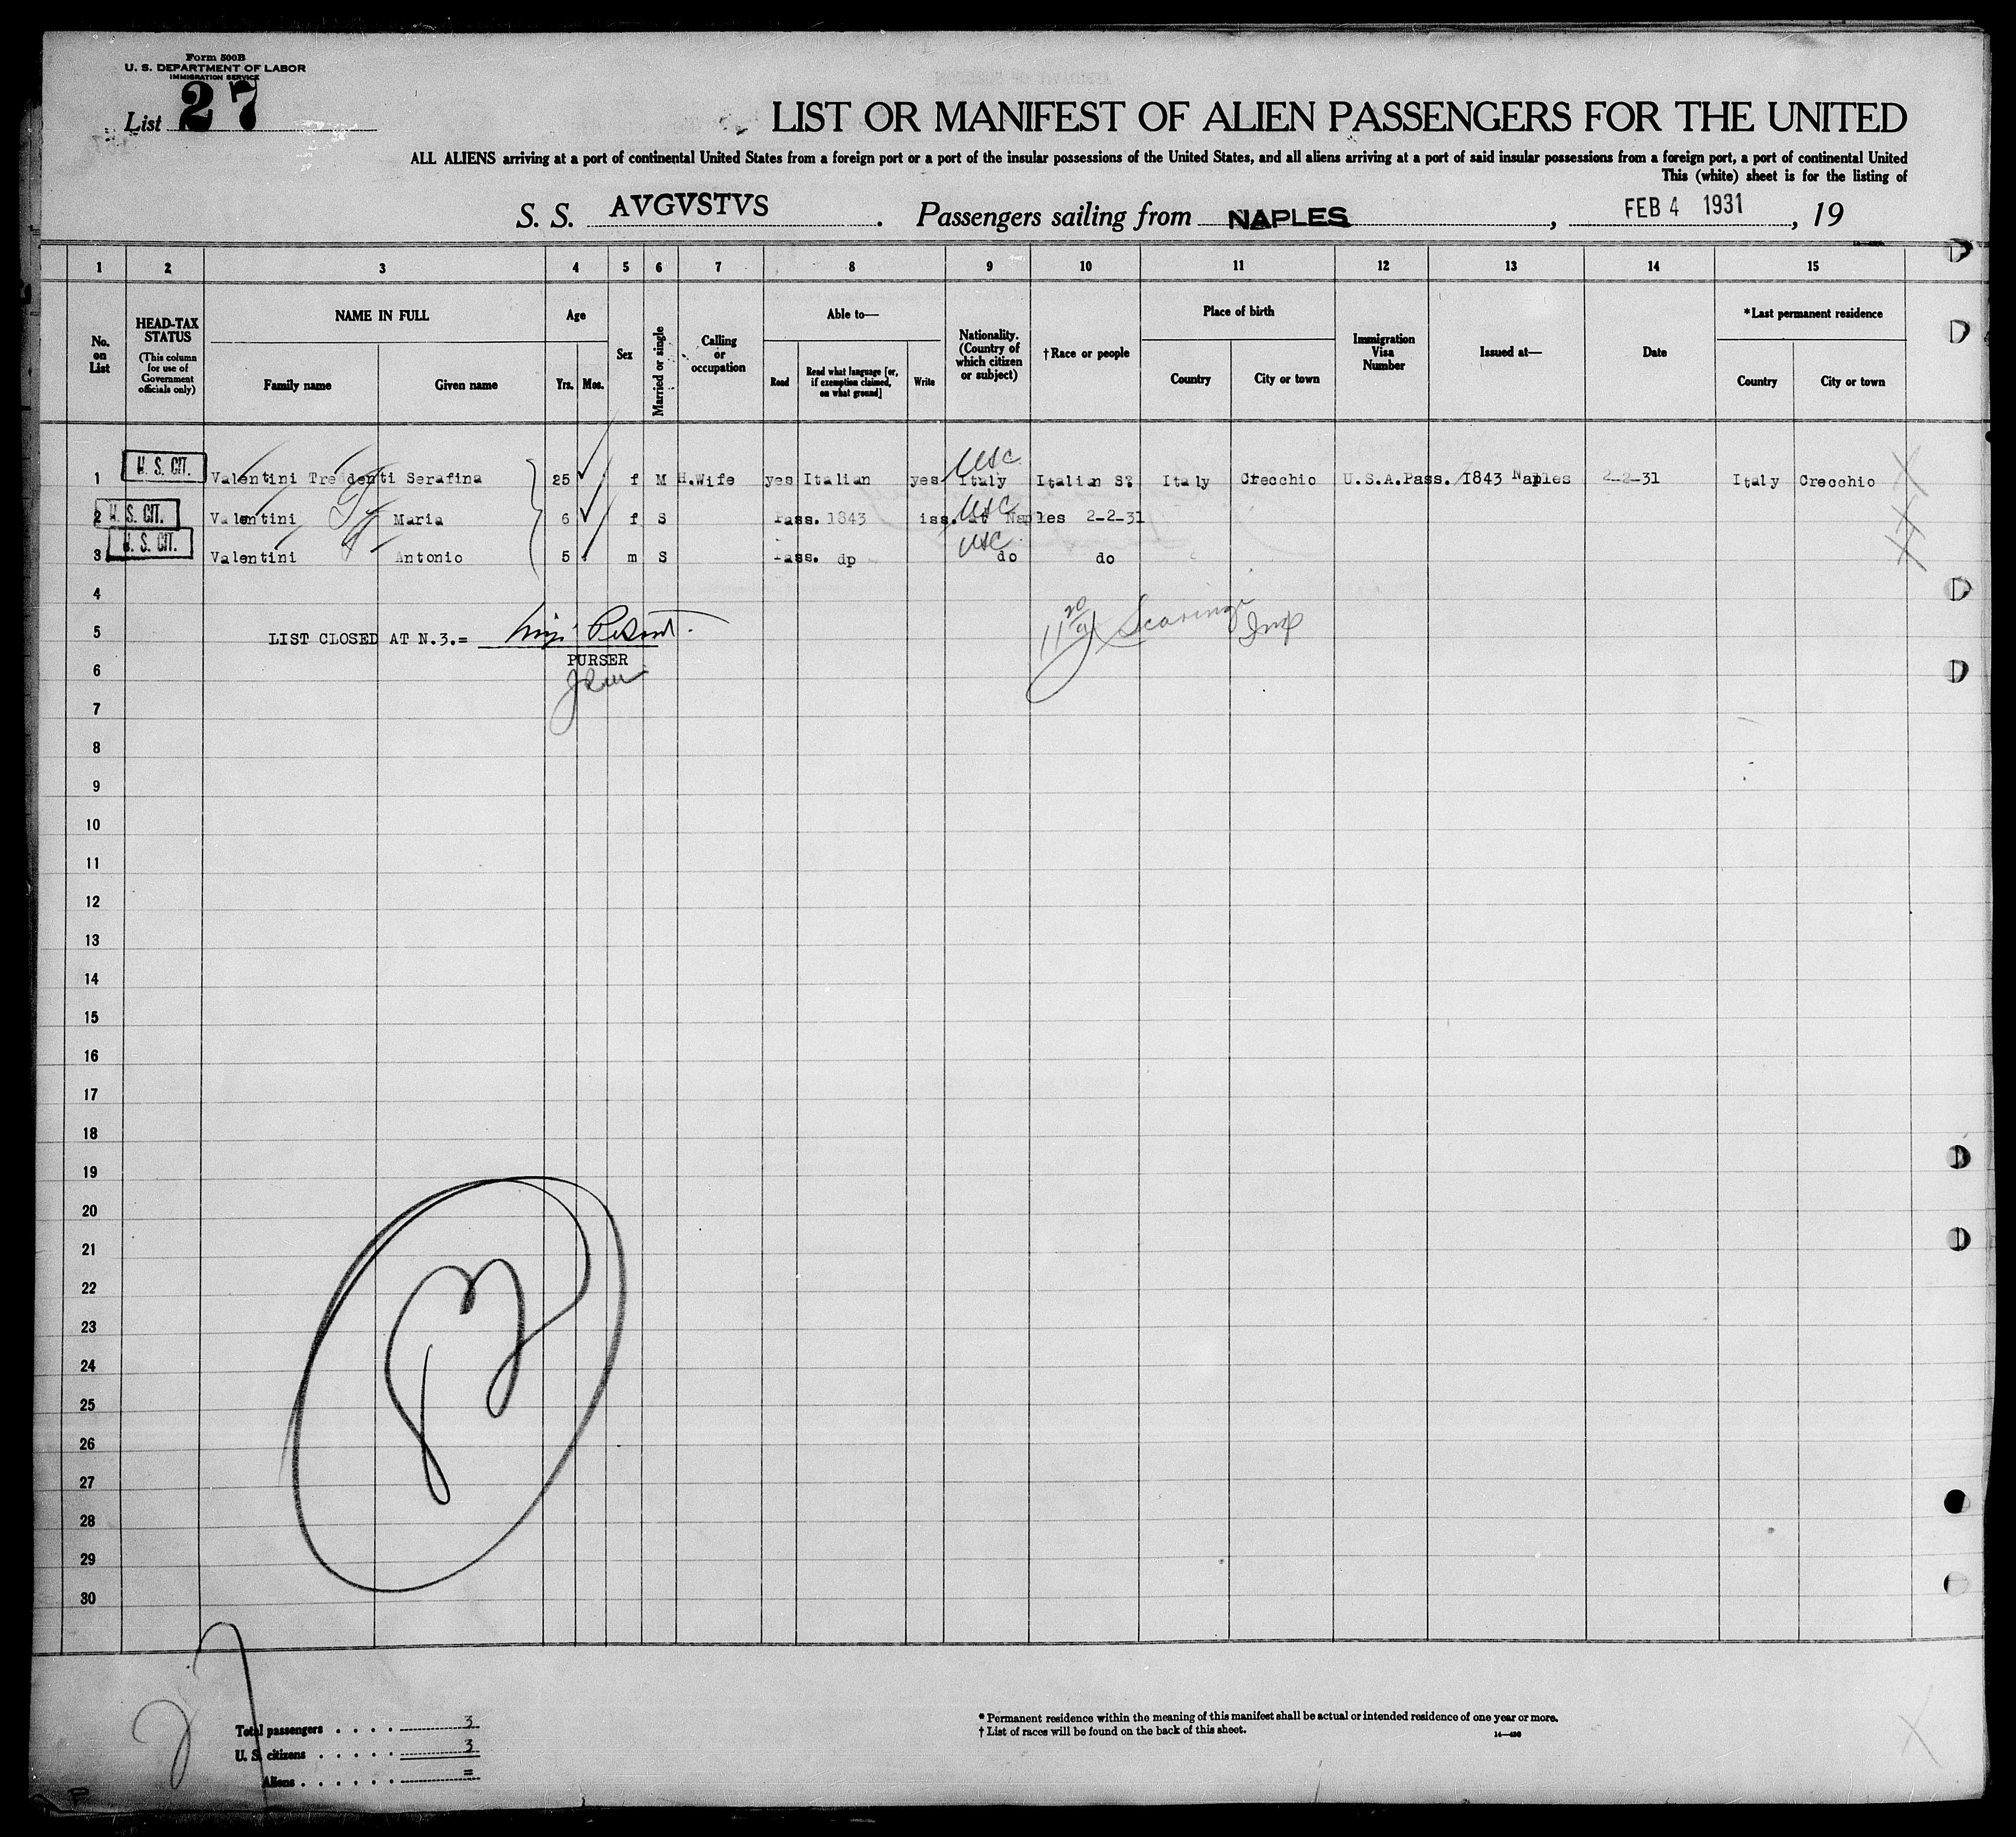 Form 500B
U. S. DEPARTMENT OF LABOR
IMMIGRATION SERVICE
List 27
LIST OR MANIFEST OF ALIEN PASSENGERS FOR THE UNITED
ALL ALIENS arriving at a port of continental United States from a foreign port or a port of the insular possessions of the United States, and all aliens arriving at a port of said insular possessions from a foreign port, a port of continental United
This (white) sheet is for the listing of
S. S. AVGVSTVS. Passengers sailing from NAPLES, FEB 4 1931, 19
1 2 3 4 5 6 7 8 9 10 11 12 13 14 15
No. on List
HEAD-TAX STATUS
(This column for use of Government officials only)
NAME IN FULL
Family name Given name
Age
Yrs. Mos.
Sex
Married or single
Calling or occupation
Able to—
Read
Read what language [or, if exemption claimed, on what ground]
Write
Nationality. (Country of which citizen or subject)
†Race or people
Place of birth
Country City or town
Immigration Visa Number
Issued at—
Date
*Last permanent residence
Country City or town
USC
1 U. S. CIT. Valentini Tredenti Serafina 25 f M H.Wife yes Italian yes Italy Italian S? Italy Crecchio U.S.A.Pass. 1843 Naples 2-2-31 Italy Crecchio
2 U. S. CIT. Valentini Maria 6 f S Pass. 1843 iss. at Naples 2-2-31
USC
3 U. S. CIT. Valentini Antonio 5 m S Pass. dp do do
USC
4
5 LIST CLOSED AT N.3.=
PURSER
6
7
8
9
10
11
12
13
14
15
16
17
18
19
20
21
22
23
24
25
26
27
28
29
30
27
Total passengers . . . . 3
U. S. citizens . . . . . 3
Aliens . . . . . . =
* Permanent residence within the meaning of this manifest shall be actual or intended residence of one year or more.
† List of races will be found on the back of this sheet.
P